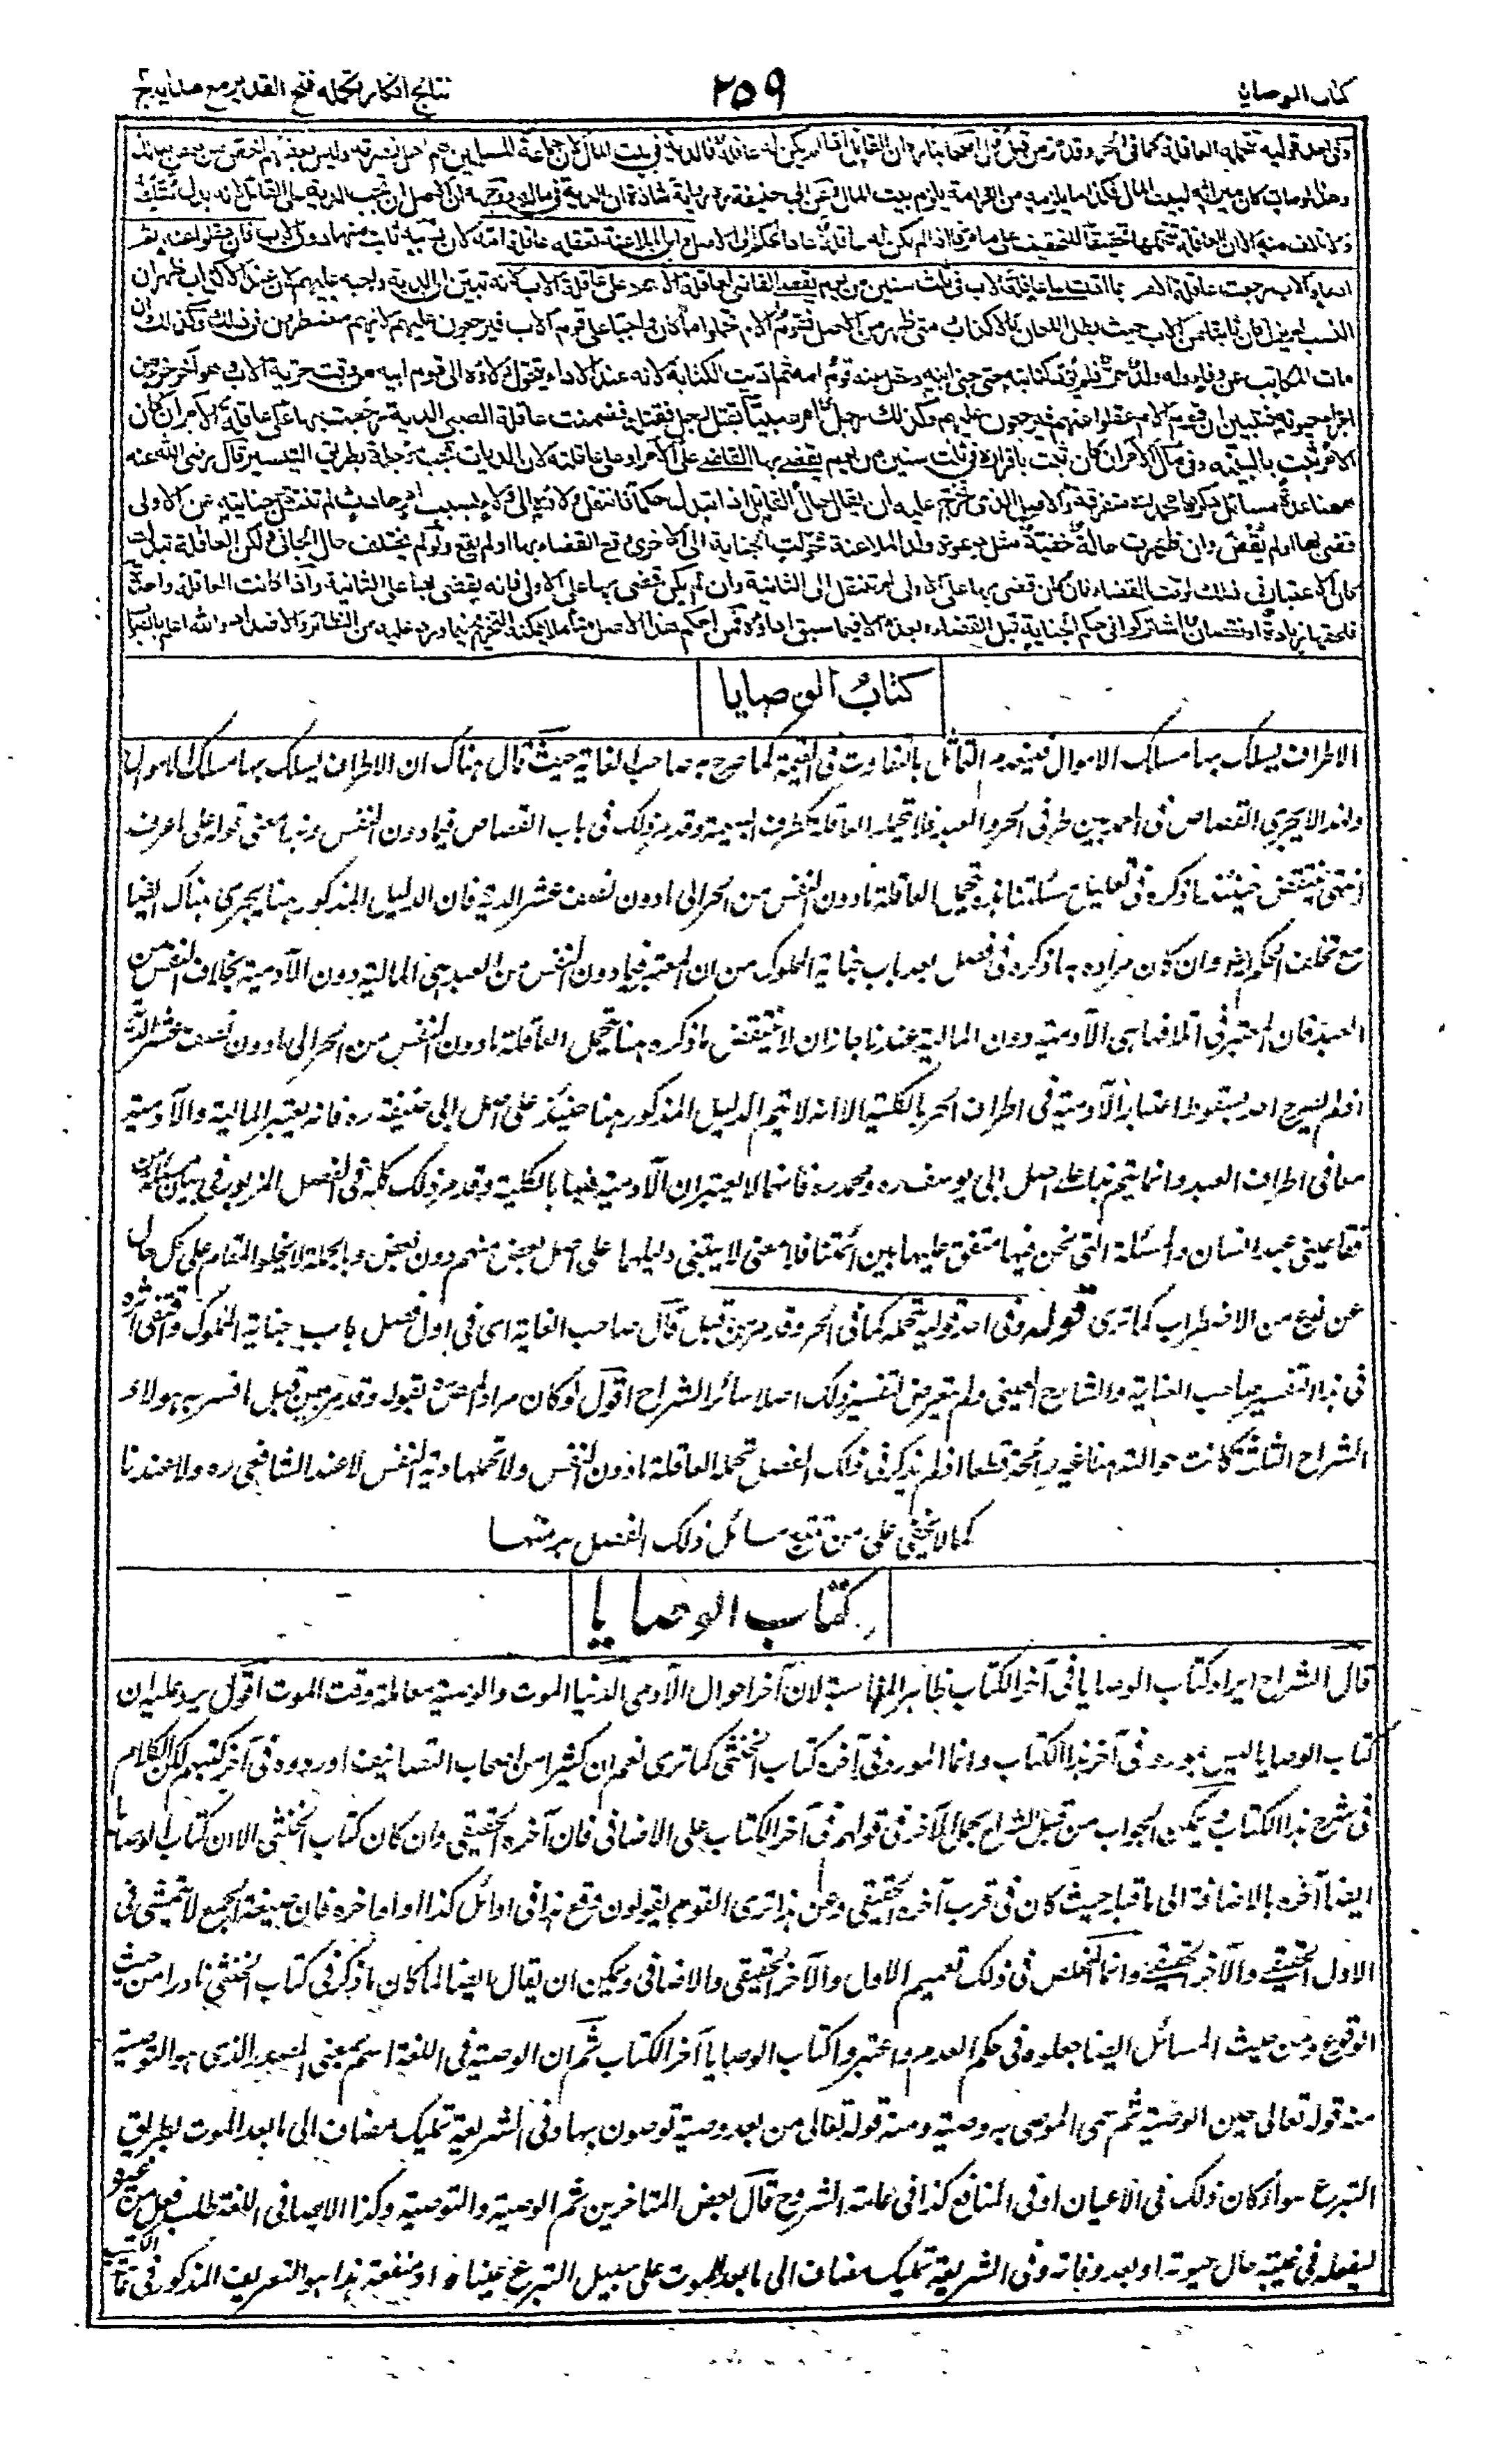 كتاب الوصايا
٢٥٩
نتائج افكار تكمله فتح القدير مع هدايه ج
وفي احد قوليه تحمله العاقلة كما في الحر وقد مر من قبل قال اصحابنا ره ان القاتل اذا لم يكن له عاقلة فالدية في بيت المال لان جماعة المسلمين هم اهل نصرته وليس بعضهم اخص من بعض بذلك
ولهذا لو مات كان ميراثه لبيت المال فكذا ما يلزمه من الغرامة يلزم بيت المال وعن ابي حنيفة ره رواية شاذة ان الدية في ماله ووجهه ان الاصل ان تجب الدية على القاتل لانه بدل متلف
والاتلاف منه الا ان العاقلة تتحملها تحقيقا للتخفيف على ما مر واذا لم يكن له عاقلة عاد الحكم الى الاصل وابن الملاعنة تعقله عاقلة امه لان نسبه ثابت منها دون الاب فان عقلوا عنه ثم
ادعاه الاب رجعت عاقلة الام بما ادت على عاقلة الاب في ثلث سنين من يوم يقضي القاضي لعاقلة الام على عاقلة الاب لانه تبين ان الدية واجبة عليهم لان عند الاكذاب ظهر ان
النسب لم يزل كان ثابتا من الاب حيث بطل اللعان بالاكذاب ومتى ظهر من الاصل فقوم الام تحملوا ما كان واجبا على قوم الاب فيرجعون عليهم لانهم مضطرون في ذلك وكذلك ان
مات المكاتب عن وفاء وله ولد حر فلم يؤد كتابته حتى جنى ابنه وعقل عنه قوم امه ثم اديت الكتابة لانه عند الاداء يتحول ولاؤه الى قوم ابيه من وقت حرية الاب وهو آخر جزء من
اجزاء حيوته فيتبين ان قوم الام عقلوا عنهم فيرجعون عليهم وكذلك رجل امر صبيا بقتل رجل فقتله فضمنت عاقلة الصبي الدية رجعت بها على عاقلة الآمر ان كان
الامر ثبت بالبينة وفي مال الآمر ان كان ثبت باقراره في ثلث سنين من يوم يقضي بها القاضي على الآمر او على عاقلته لان الديات تجب مؤجلة بطريق التيسير قال رضي الله عنه
ههنا عدة مسائل ذكرها محمد ره متفرقة والاصل الذي تخرج عليه ان يقال حال القاتل اذا تبدل حكما فانتقل ولاؤه الى ولاء بسبب امر حادث لم تنتقل جنايته عن الاولى
قضى بها او لم يقض وان ظهرت حالة خفية مثل دعوة ولد الملاعنة حولت الجناية الى الاخرى وقع القضاء بها او لم يقع ولو لم يختلف حال الجاني ولكن العاقلة تبدلت
كان الاعتبار في ذلك لوقت القضاء فان كان قضى بها على الاولى لم تنتقل الى الثانية وان لم يكن قضى بها على الاولى فانه يقضى بها على الثانية واذا كانت العاقلة واحدة
فلحقها زيادة او نقصان اشتركوا في حكم الجناية قبل القضاء وبعده الا فيما سبق اداؤه فمن احكم هذا الاصل متأملا يمكنه التخريج فيما ورد عليه من النظائر والاضداد والله اعلم بالصواب
كتاب الوصايا
الاطراف يسلك بها مسالك الاموال فينعدم التماثل بالتفاوت في القيمة كما صرح به صاحب الغاية حيث قال هناك ان الاطراف يسلك بها مسالك الاموال
ولهذا لا يجري القصاص في العمد بين طرفي الحر والعبد فلا تتحمله العاقلة كطرف البهيمة وقد مر ذلك في باب القصاص فيما دون النفس وهذا معنى قوله على ما عرف
انتهى فينتقض حينئذ ما ذكره في تعليل مسئلتنا هذه بتحمل العاقلة ما دون النفس من الحر الى ما دون نصف عشر الدية فان الدليل المذكور هنا يجري هناك ايضا
مع تخلف الحكم ايضا وان كان مراده به ما ذكره في فصل بعد باب جناية المملوك من ان المعتبر فيما دون النفس من العبد هي المالية دون الآدمية بخلاف النفس من
العبد فان المعتبر في اتلافها هي الآدمية دون المالية عندنا جاز ان لا ينتقض ما ذكره هنا بتحمل العاقلة ما دون النفس من الحر الى ما دون نصف عشر الدية
اذ لم يصرح احد بسقوط اعتبار الآدمية في اطراف الحر بالكلية الا انه لا يتم الدليل المذكور هنا حينئذ على اصل ابي حنيفة ره فانه يعتبر المالية والآدمية
معا في اطراف العبد وانما يتم هذا على اصل ابي يوسف ره ومحمد ره فانهما لا يعتبران الآدمية فيها بالكلية وقد مر ذلك كله في الفصل المزبور في بيان مسئلة من
فقأ عيني عبد انسان والمسئلة التي نحن فيها متفق عليها بين ائمتنا فلا معنى لا يبتنى دليلها على اصل بعض منهم دون بعض وبالجملة لا يخلو المقام على كل حال
عن نوع من الاضطراب كما ترى قوله وفي احد قوليه تحمله كما في الحر وقد مر من قبل قال صاحب الغاية اي في اول فصل باب جناية المملوك واقتفى اثره
في هذا التفسير صاحب العناية والشارح العيني ولم يتعرض لتفسير ذلك اصلا سائر الشراح اقول لو كان مراد المص بقوله وقد مر من قبل ما فسر به هؤلاء
الشراح الثلثة كانت حوالته هنا غير رائجة قطعا اذ لم يذكر في ذلك الفصل تحمل العاقلة ما دون النفس ولا تحملها دية النفس لا عند الشافعي ره ولا عندنا
كما لا يخفى على من تتبع مسائل ذلك الفصل برمتها
كتاب الوصايا
قال الشراح ايراد كتاب الوصايا في آخر الكتاب ظاهر المناسبة لان آخر احوال الآدمي في الدنيا الموت والوصية معاملة وقت الموت اقول يرد عليه ان
كتاب الوصايا ليس بمورد في آخر هذا الكتاب وانما المورد في آخره كتاب الخنثى كما ترى نعم ان كثيرا من اصحاب التصانيف اوردوه في آخر كتبهم لكن الكلام
في شرح هذا الكتاب ويمكن الجواب من قبل الشراح بحمل الآخر في قولهم في آخر الكتاب على الاضافي فان آخره الحقيقي وان كان كتاب الخنثى الا ان كتاب الوصايا
ايضا آخره بالاضافة الى ما قبله حيث كان في قرب آخره الحقيقي وعن هذا ترى القوم يقولون وقع هذا في اوائل كذا او اواخره فان صيغة الجمع لا تتمشى في
الاول الحقيقي والآخر الحقيقي وانما المخلص في ذلك تعميم الاول والآخر الحقيقي والاضافي ويمكن ان يقال ايضا لما كان ما ذكر في كتاب الخنثى نادرا من حيث
الوقوع ومن حيث المسائل ايضا جعلوه في حكم العدم واعتبروا كتاب الوصايا آخر الكتاب ثم ان الوصية في اللغة اسم بمعنى المصدر الذي هو التوصية
منه قوله تعالى حين الوصية ثم سمي الموصى به وصية ومنه قوله تعالى من بعد وصية توصون بها وفي الشريعة تمليك مضاف الى ما بعد الموت بطريق
التبرع سواء كان ذلك في الاعيان او في المنافع كذا في عامة الشروح قال بعض المتاخرين ثم الوصية والتوصية وكذا الايصاء في اللغة طلب فعل من غيره
ليفعله في غيبته حال حيوته او بعد وفاته وفي الشريعة تمليك مضاف الى ما بعد الموت على سبيل التبرع عينا او منفعة هذا هو التعريف المذكور في عامة الكتب